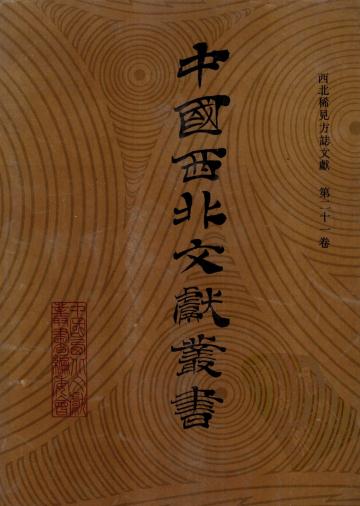 西北稀見方誌文獻 第二十一卷
中國西北文獻叢書
中國西北文獻
叢書編委會